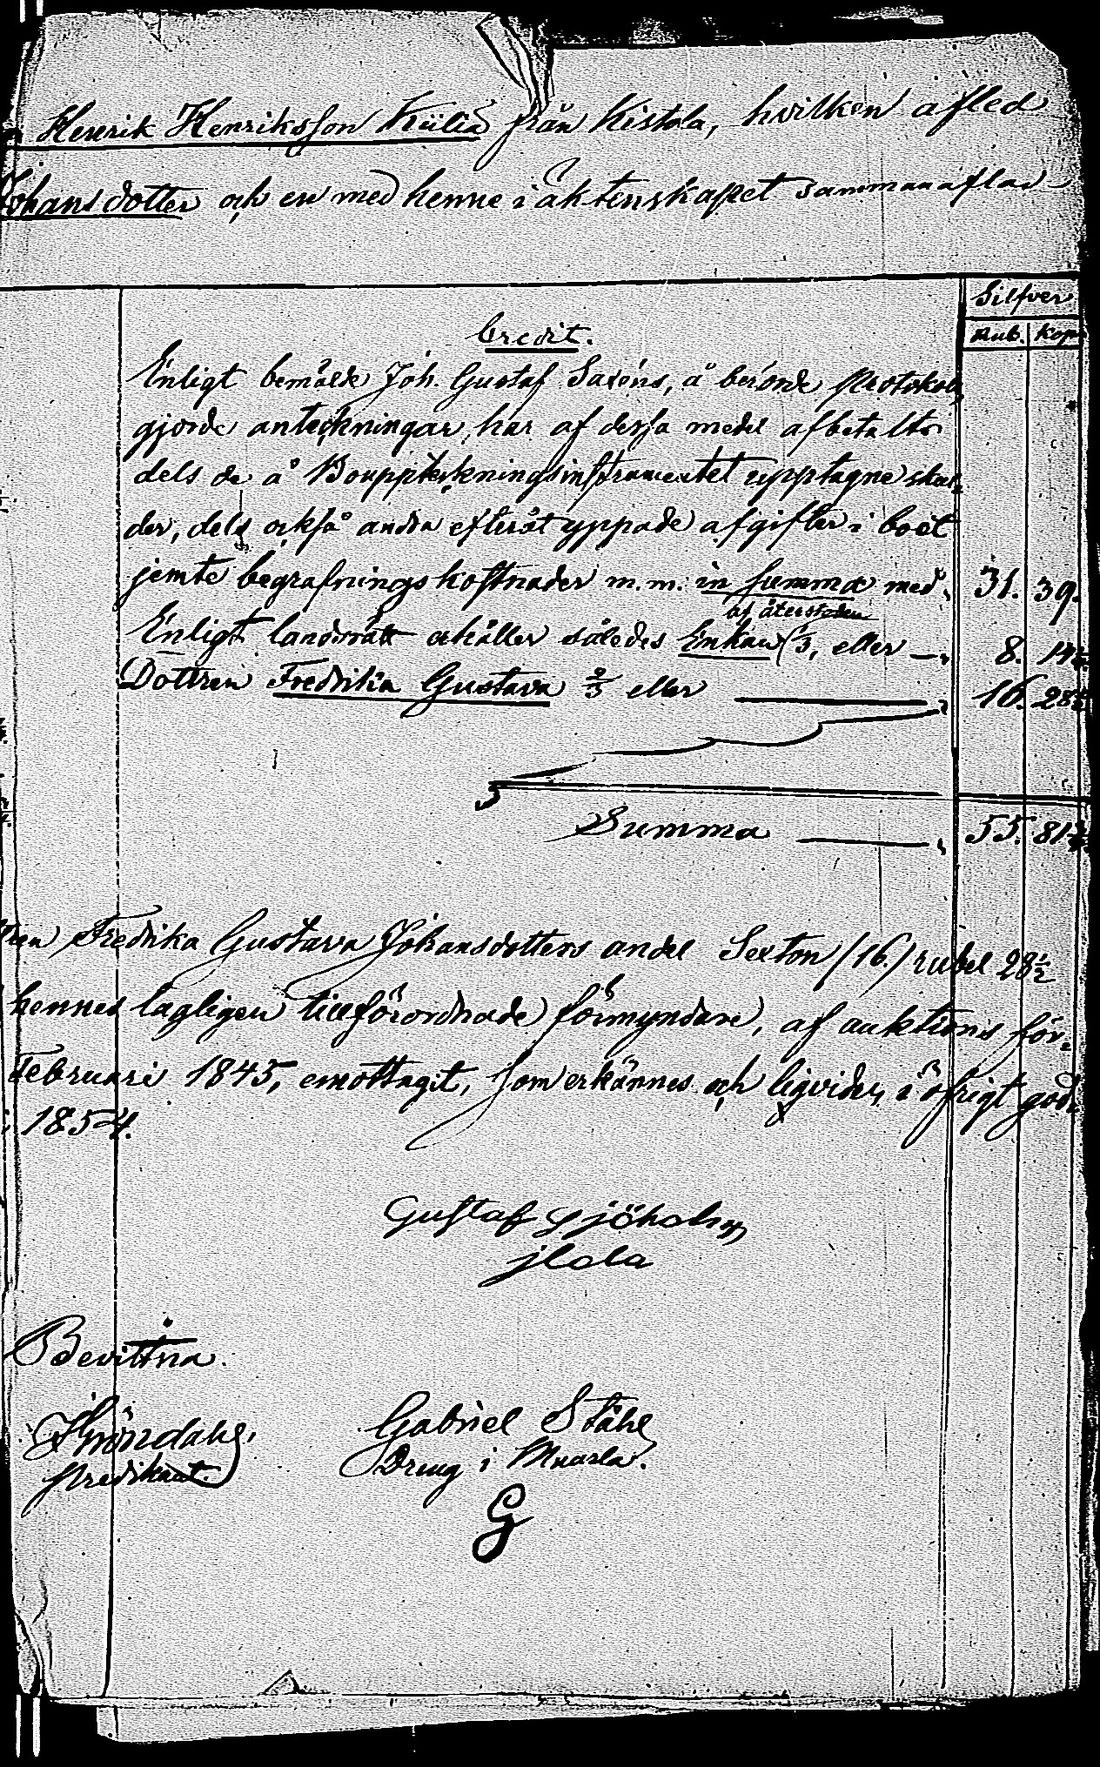 Henrik Henriksson Kiilia från Kistola, hvilken afled
Johansdotter och en med henne i äktenskapet sammanaflad
Silfver
Rub. Kop.
Credit.
Enligt bemälde Joh. Gustaf Saxéns, å berörde Protokoll
gjorde anteckningar, har af dessa medel afbetalts
dels de å Bouppteckningsinstrumentet upptagne skul-
der, dels också andra efteråt yppade afgifter i boet
jemte begrafningskostnader m.m. in summa med 31. 39.
af återstoden
Enligt landsrätt erhåller således Enkan 1/3, eller — 8. 14
Dottren Fredrika Gustava 2/3 eller — 16. 28 1/2
Summa — 55. 81
Fredrika Gustava Johansdotters andel Sexton /16./ rubel 28 1/2
hennes lagligen tillförordnade förmyndare, af auktions för-
Februari 1845, emottagit, som erkännes och ligvider, i öfrigt god-
i 1854.
Gustaf Sjöholm
Ilola
Bevittna:
Predikant.
Gabriel Ståhl
Dreng i Muurla.
G